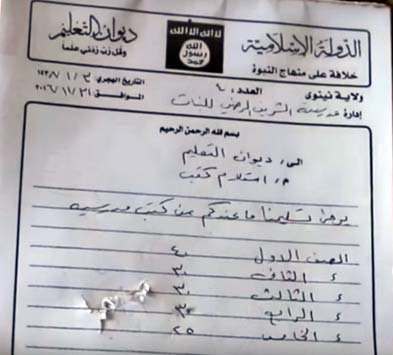 الدولة الإسلامية
خلافة على منهاج النبوة
لا اله الا الله
الله
رسول
محمد
ديوان التعليم
وقل رب زدني علماً
ولاية نينوى
العدد:
التاريخ الهجري: ١٤٣٨/١/٣٠
الموافق: ٢٠١٦/١٠/٣١
ادارة مدرسة الشريف الرضي للبنات
بسم الله الرحمن الرحيم
الى/ ديوان التعليم
م/ استلام كتب
يرجى تسليمنا ما عندكم من كتب مدرسية
الصف الاول ٤٠
ء الثاني ٣٠
ء الثالث ٣٠
ء الرابع ٣٠
ء الخامس ٢٥